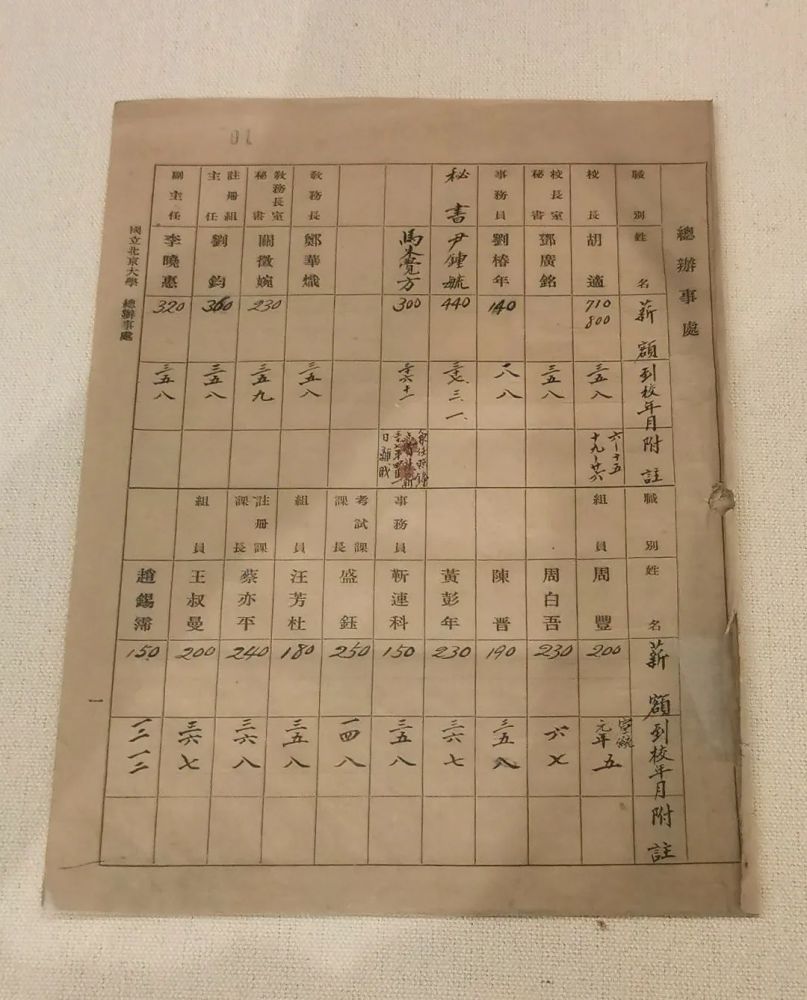 總辦事處
職別 姓名 薪額 到校年月 附註
校長 胡適 710 800 三五八 六-十五 十九-廿六
校長室秘書 鄧廣銘 三五八
事務員 劉椿年 140 八八
秘書 尹鍾毓 440 三七三一
300 三六十一 日離職
教務長 鄭華熾 三五八
教務長室秘書 關徵婉 230 三五九
註冊組主任 劉鈞 360 三五八
副主任 李曉惠 320 三五八
職別 姓名 薪額 到校年月 附註
組員 周豐 200 宣統元年五
周白吾 230 六七
陳晋 190 三五八
黃彭年 230 三六七
事務員 靳連科 150 三五八
考試課課長 盛鈺 250 一四八
組員 汪芳杜 180 三五八
註冊課課長 蔡亦平 240 三六八
組員 王叔曼 200 三六七
趙錫霈 150 一二一二
國立北京大學 總辦事處
一